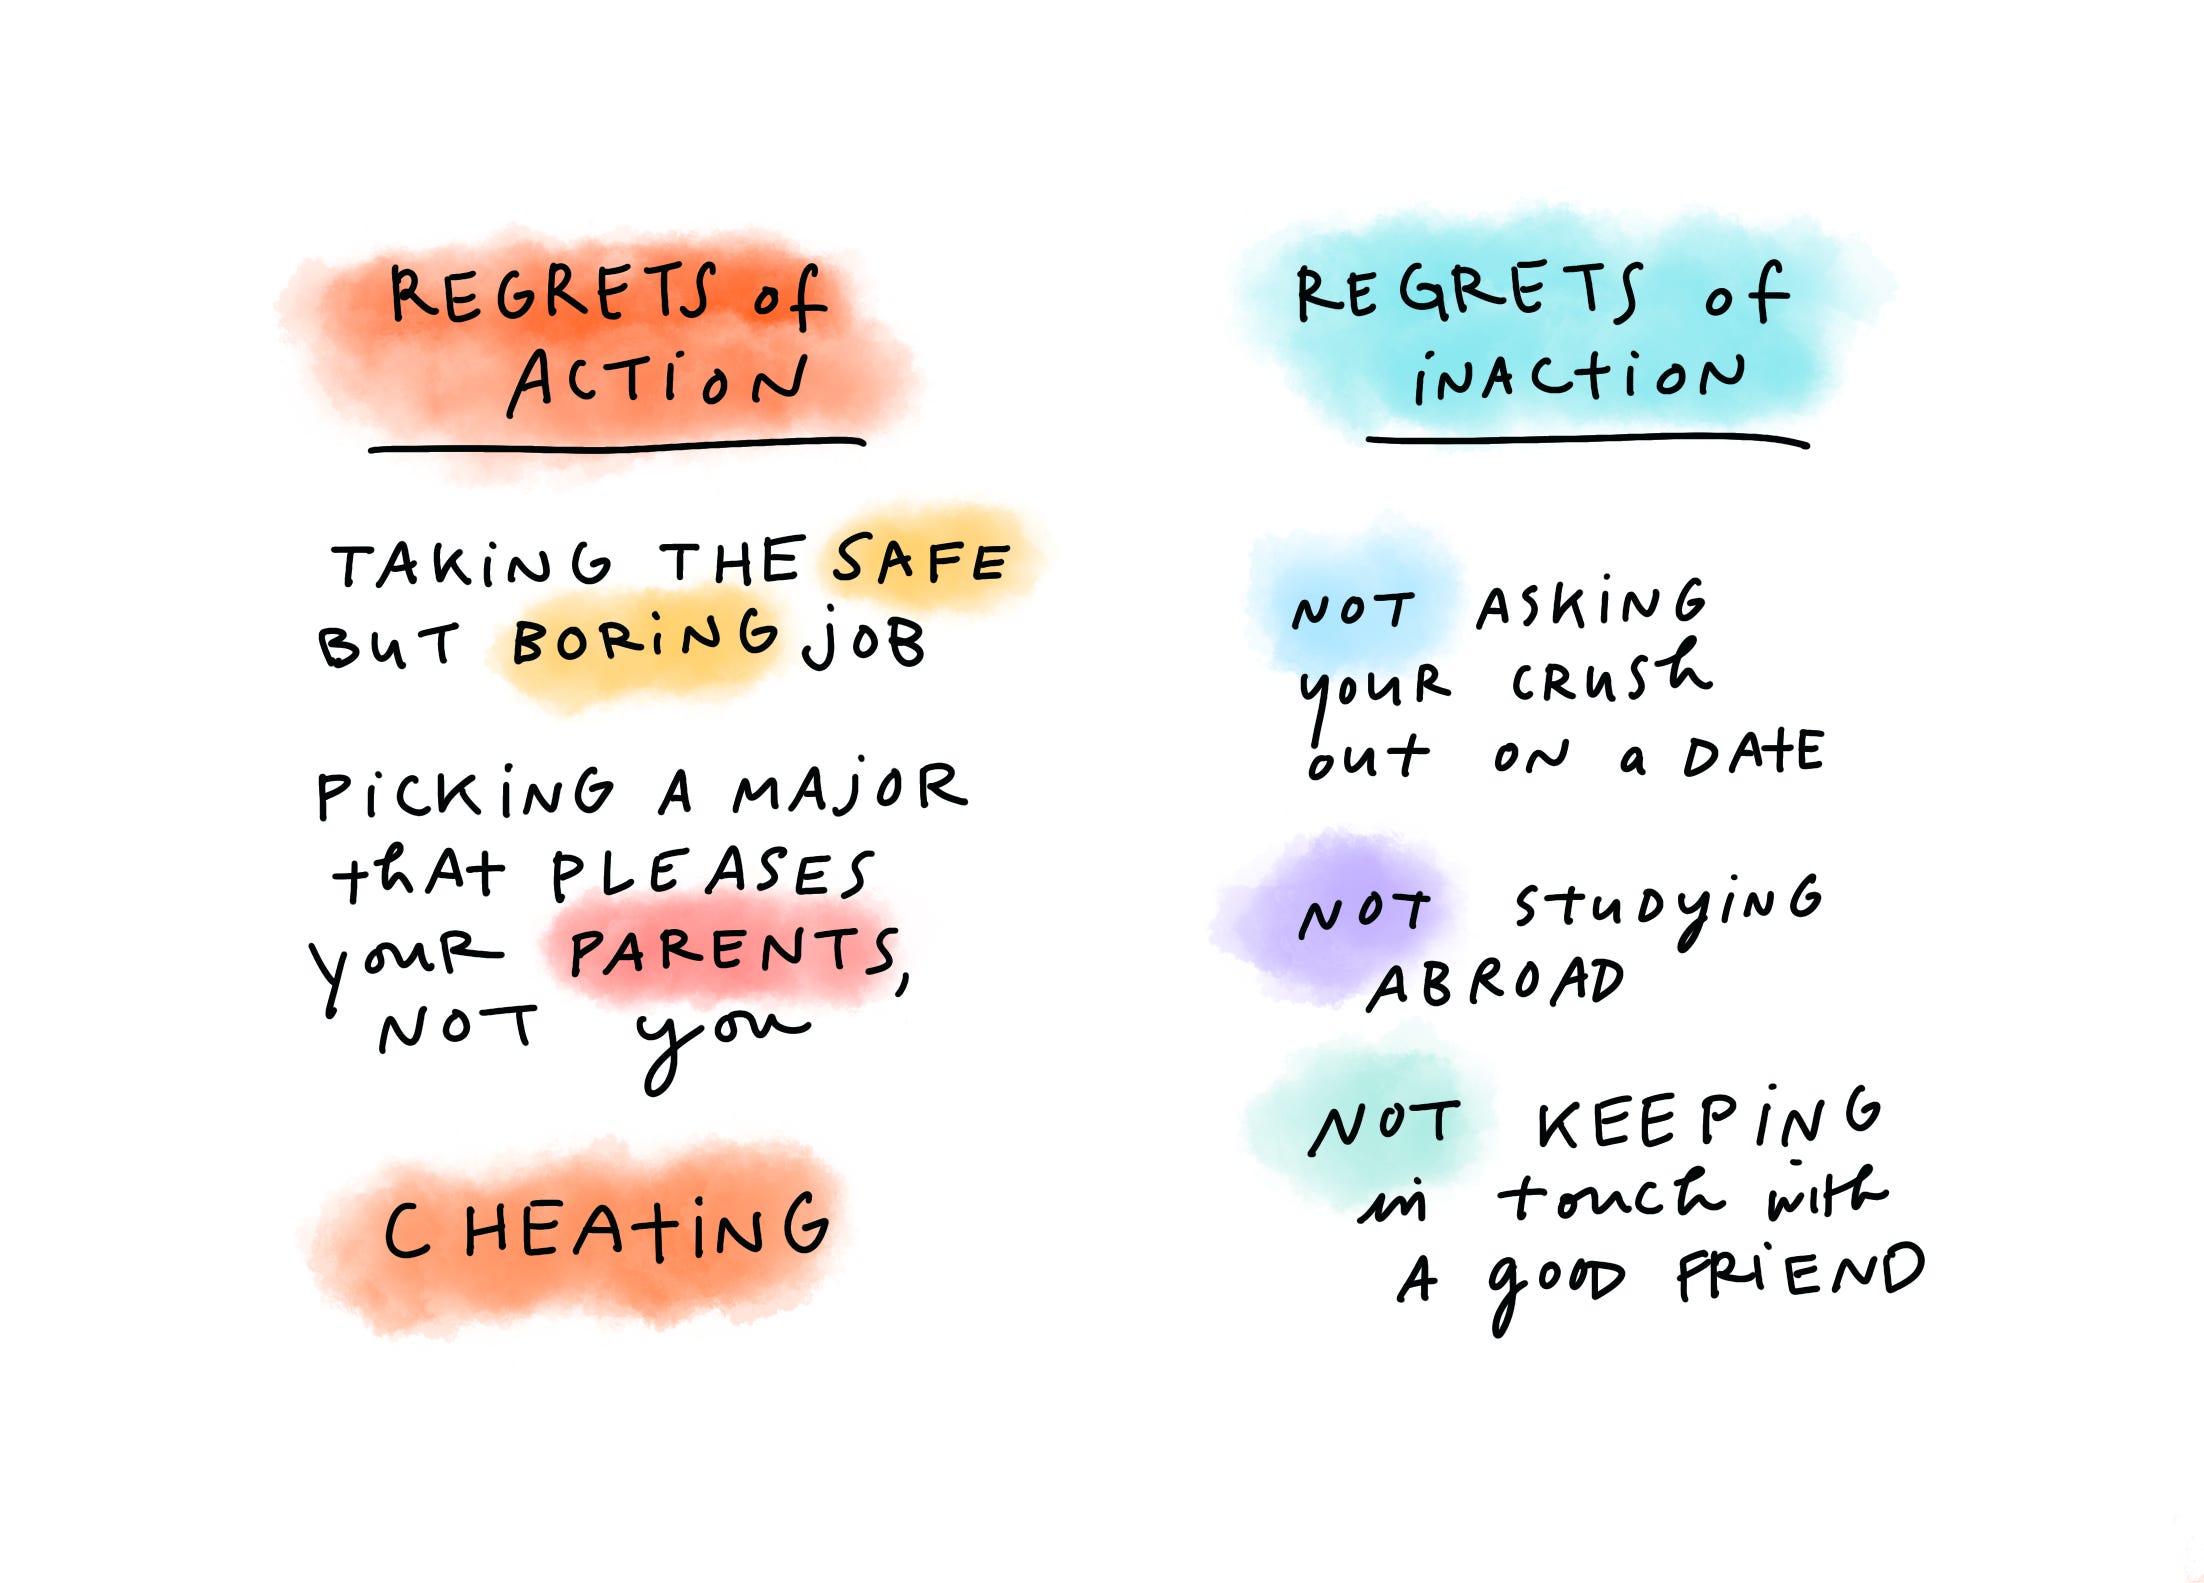 REGRETS of
ACTiON
TAKiNG THE SAFE
BUT BORiNG jOB
PiCKiNG A MAjOR
thAt PLEASES
youR PARENTS,
NOT you
CHEAtiNG
REGRETS of
iNACtiON
NOT ASKiNG
youR CRUSh
out ON a DAtE
NOT StuDyiNG
ABROAD
NOT KEEPiNG
in touch with
A gooD FRiEND